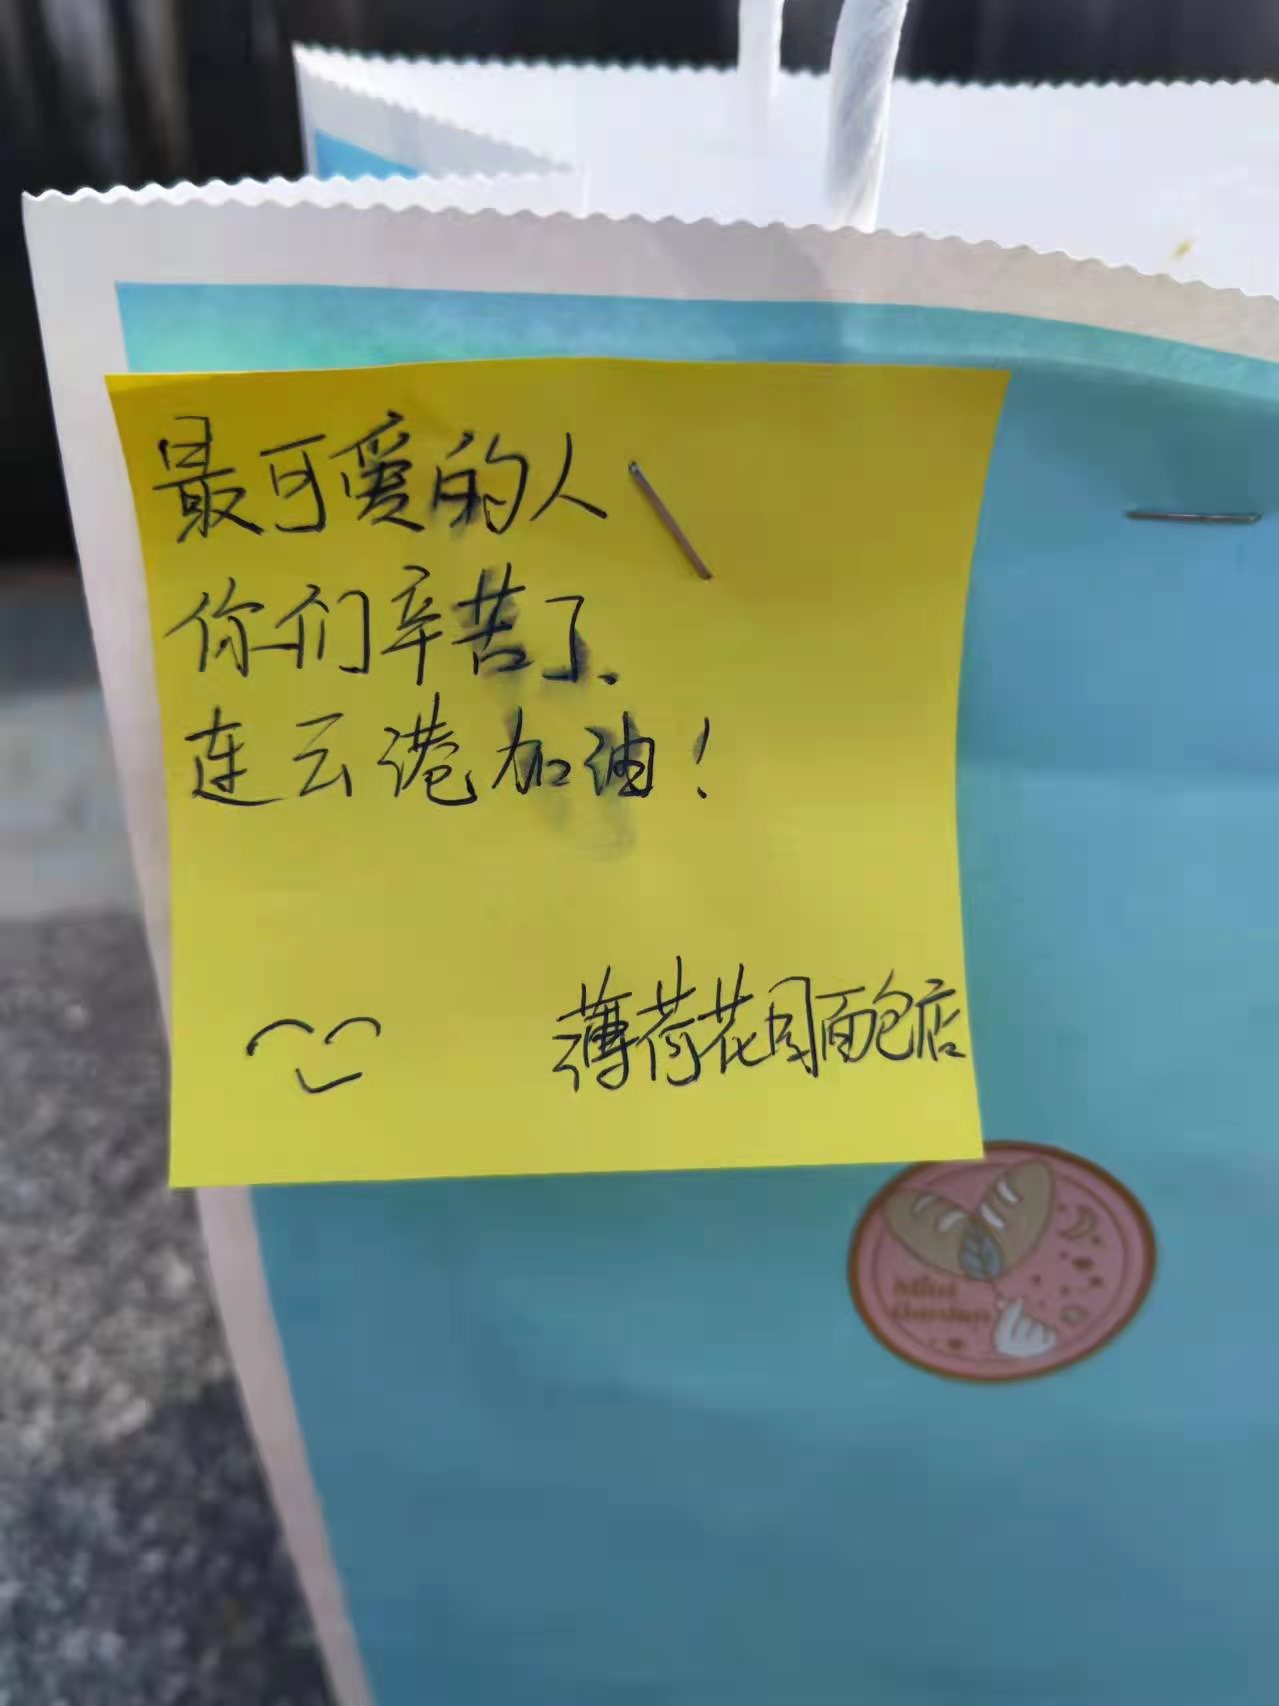 最可爱的人
你们辛苦了.
连云港加油！
薄荷花园面包店
Mint
Garden